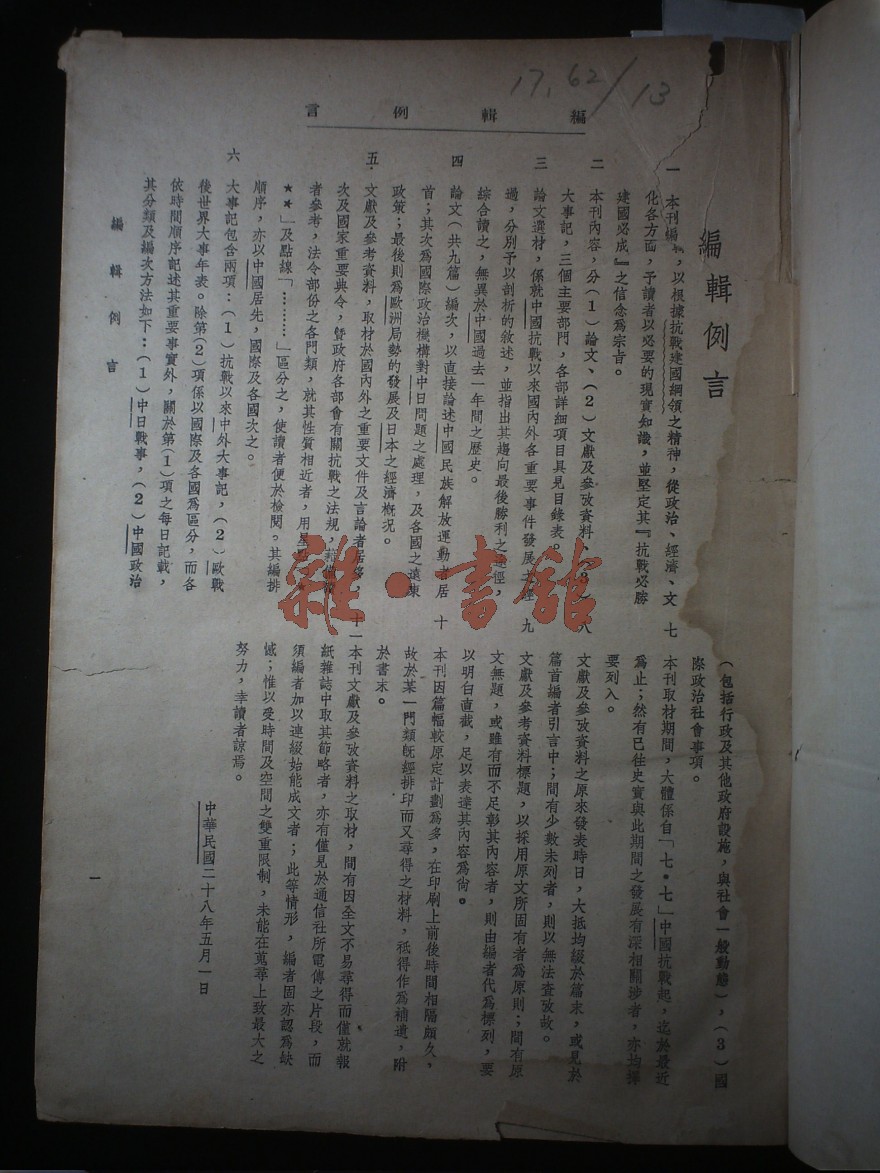 17,62/13
編輯例言
編輯例言
一 本刊編，以根據抗戰建國綱領之精神，從政治、經濟、文
化各方面，予讀者以必要的現實知識，並堅定其『抗戰必勝
建國必成』之信念爲宗旨。
二 本刊內容，分（1）論文、（2）文獻及參攷資料
大事記，三個主要部門，各部詳細項目具見目錄表。
三 論文選材，係就中國抗戰以來國內外各重要事件發展之經
過，分別予以剖析的敘述，並指出其趨向最後勝利之途徑，
綜合讀之，無異於中國過去一年間之歷史。
四 論文（共九篇）編次，以直接論述中國民族解放運動者居
首；其次爲國際政治機構對中日問題之處理，及各國之遠東
政策；最後則爲歐洲局勢的發展及日本之經濟概況。
五 文獻及參考資料，取材於國內外之重要文件及言論者居多，
次及國家重要典令，暨政府各部會有關抗戰之法規，
者參考，法令部份之各門類，就其性質相近者，用星
★★」及點線「………」區分之，使讀者便於檢閱。其編排
順序，亦以中國居先，國際及各國次之。
六 大事記包含兩項：（1）抗戰以來中外大事記，（2）歐戰
後世界大事年表。除第（2）項係以國際及各國爲區分，而各
依時間順序記述其重要事實外，關於第（1）項之每日記載，
其分類及編次方法如下：（1）中日戰事，（2）中國政治
（包括行政及其他政府設施，與社會一般動態），（3）國
際政治社會事項。
七 本刊取材期間，大體係自「七·七」中國抗戰起，迄於最近
爲止；然有已往史實與此期間之發展有深相關涉者，亦均擇
要列入。
八 文獻及參攷資料之原來發表時日，大抵均綴於篇末，或見於
篇首編者引言中；間有少數未列者，則以無法查攷故。
九 文獻及參考資料標題，以採用原文所固有者爲原則；間有原
文無題，或雖有而不足彰其內容者，則由編者代爲標列，要
以明白直截，足以表達其內容爲尙。
十 本刊因篇幅較原定計劃爲多，在印刷上前後時間相隔頗久，
故於某一門類旣經排印而又尋得之材料，祗得作爲補遺，附
於書末。
十一 本刊文獻及參攷資料之取材，間有因全文不易尋得而僅就報
紙雜誌中取其節略者，亦有僅見於通信社所電傳之片段，而
須編者加以連綴始能成文者；此等情形，編者固亦認爲缺
憾；惟以受時間及空間之雙重限制，未能在蒐尋上致最大之
努力，幸讀者諒焉。
中華民國二十八年五月一日
編輯例言
一
雜·書館